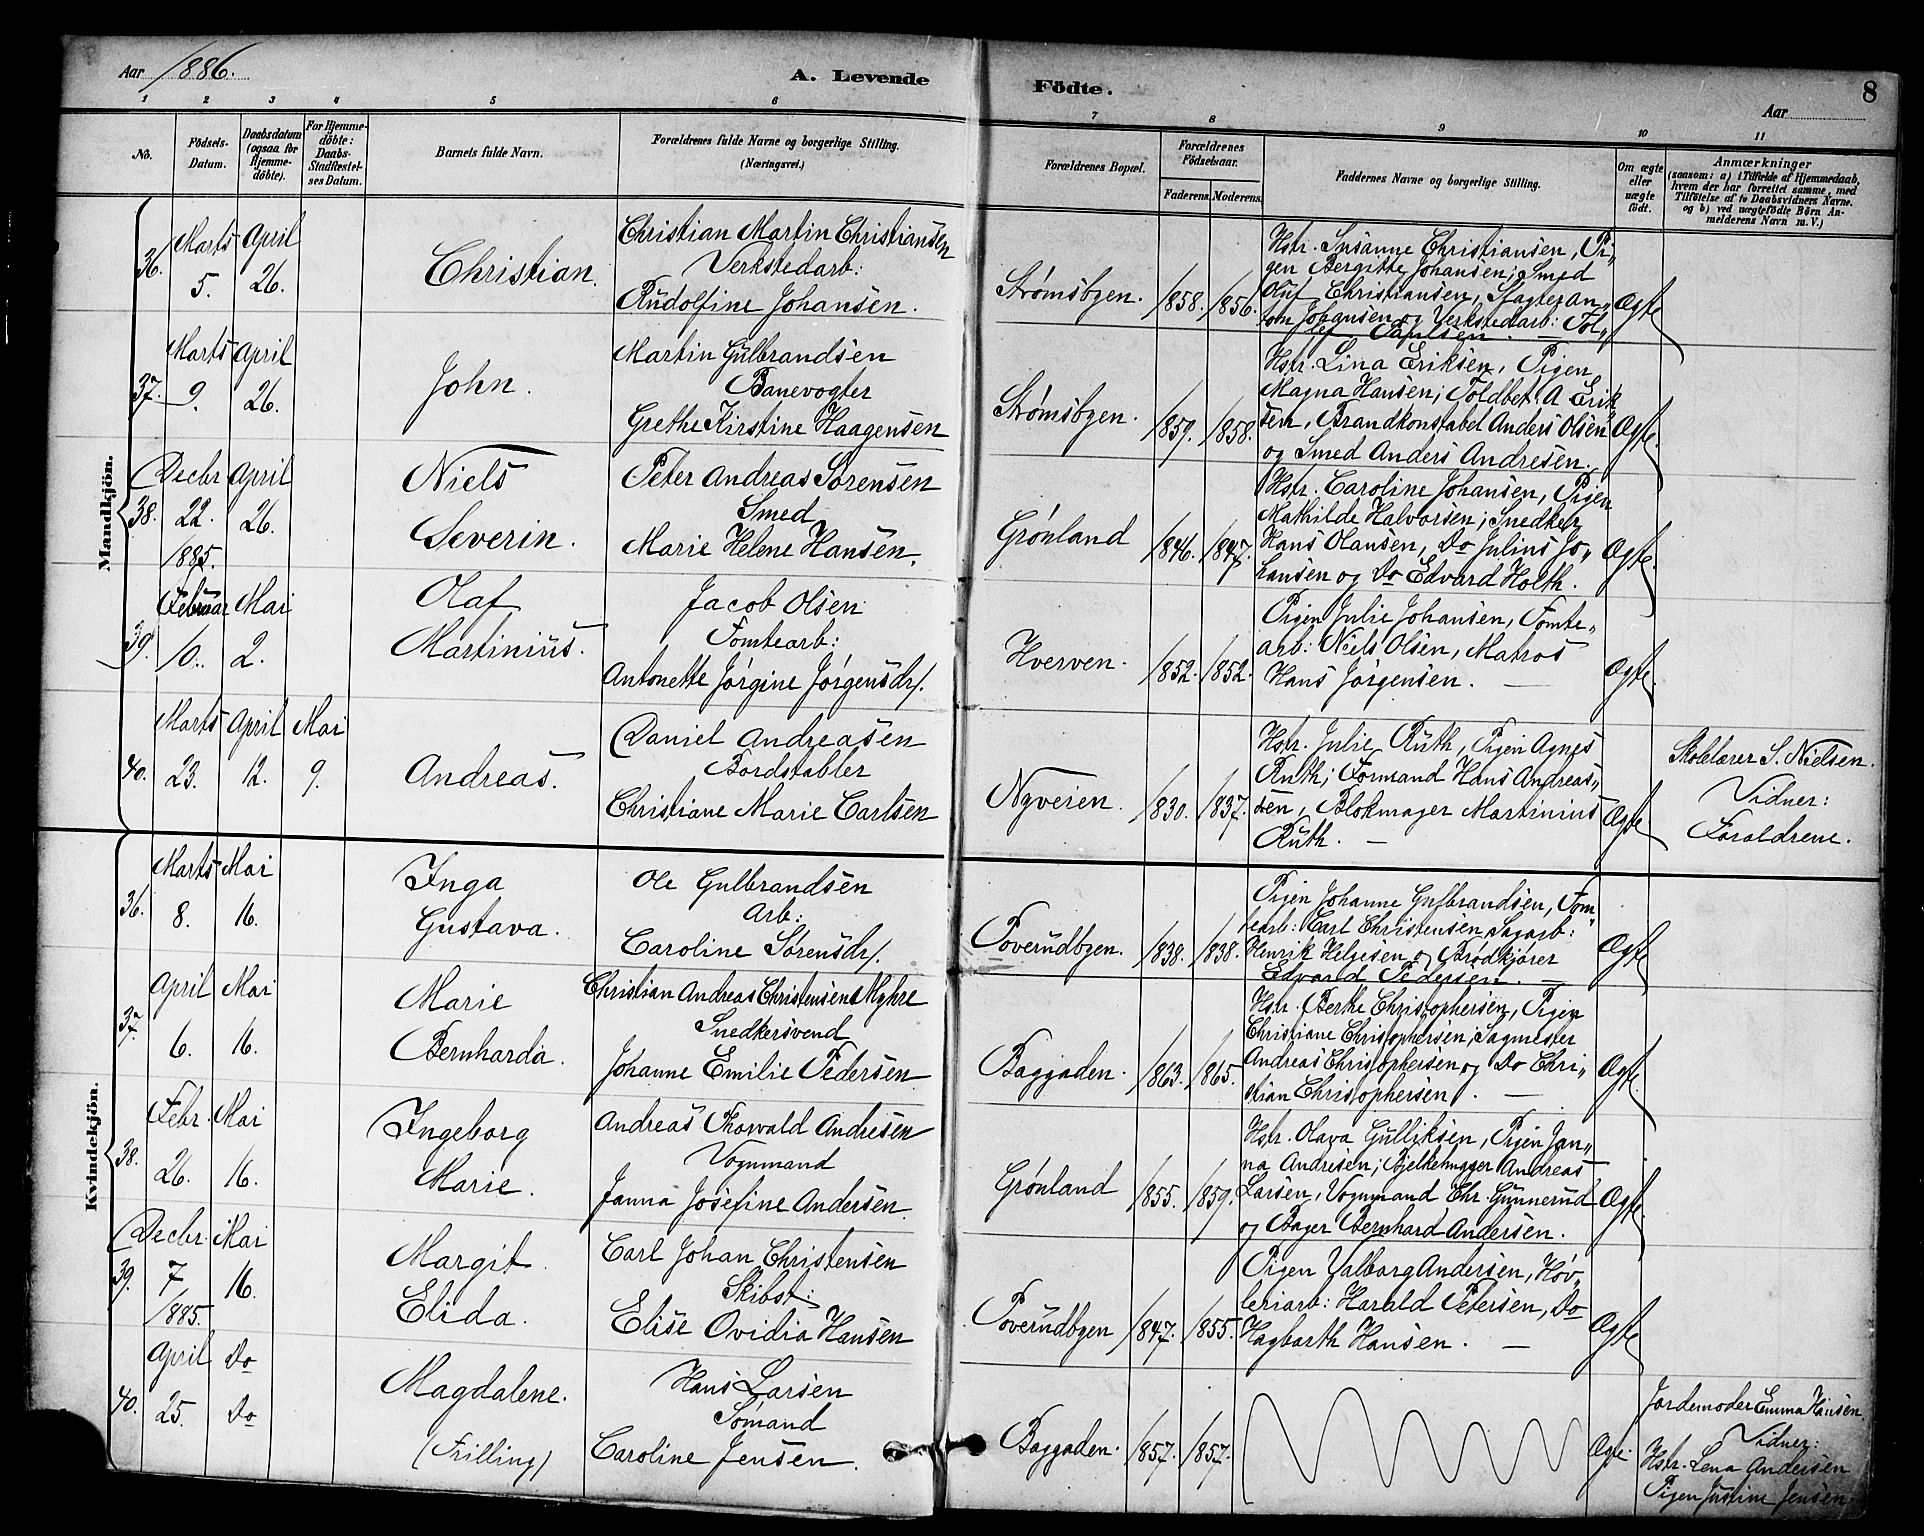 Aar 1886.
A. Levende
Födte.
8
Aar
1 2 3 4 5 6 7 8 9 10 11
No.
Födsels-
Datum.
Daabsdatum
(ogsaa for
Hjemme-
döbte).
For Hjemme-
döbte:
Daabs-
Stadfestel-
ses Datum.
Barnets fulde Navn.
Forældrenes fulde Navne og borgerlige Stilling.
(Næringsvei.)
Forældrenes Bopæl.
Forældrenes
Födselsaar.
Faderens. Moderens.
Faddernes Navne og borgerlige Stilling.
Om ægte
eller
uægte
födt.
Anmærkninger
(saasom: a) i Tilfælde af Hjemmedaab,
hvem der har forrettet samme, med
Tilföielse af to Daabsvidners Navne.
og b) ved uægtefödte Börn An-
melderens Navn m. V.)
Mandkjön.
36.
Marts
5.
April
26.
Christian.
Christian Martin Christiansen
Verkstedarb:
Rudolfine Johansen.
Strømsbyen.
1858. 1856.
Hstr. Susanne Christiansen, Pi„
gen Bergitte Johansen; Smed
Oluf Christiansen, Slagter An„
tom Johansen og Verkstedarb: Tol„
lef Paulsen.
Ægte
37.
Marts
9.
April
26.
John.
Martin Gulbrandsen
Banevogter
Grethe Kirstine Haagensen
Strømsbyen.
1859. 1858.
Hstr. Lina Eriksen, Pigen
Magna Hansen; Toldbet. A Erik
sen, Brandkonstabel Anders Olsen
og Smed Anders Andresen.
Ægte.
38.
Decbr
22.
1885.
April
26.
Niels
Severin.
Peter Andreas Sørensen
Smed
Marie Helene Hansen.
Grønland
1846. 1847.
Hstr. Caroline Johansen, Pigen
Mathilde Halvorsen; Snedker
Hans Olausen, Do Julius Jo„
hansen og Do Edvard Holth.
Ægte.
39.
Februar
10.
Mai
2.
Olaf
Martinius.
Jacob Olsen
Tomtearb:
Antonette Jørgine Jørgensdr.
Hverven.
1852. 1852.
Pigen Julie Johansen, Tomte„
arb: Niels Olsen, Matros
Hans Jørgensen.
Ægte.
40.
Marts
23.
April
12.
Mai
9.
Andreas.
Daniel Andreasen
Bordstabler
Christiane Marie Carlsen
Nyveien.
1830. 1837.
Hstr. Julie Ruth, Pigen Agnes
Ruth; Formand Hans Andreas„
sen, Blokmager Martinius
Ruth.
Ægte
Skolelærer S. Nielsen.
Vidner:
Forældrene.
Kvindekjön.
36.
Marts
8.
Mai
16.
Inga
Gustava.
Ole Gulbrandsen
Arb:
Caroline Sørensdr.
Toverudbyen.
1838. 1838.
Pigen Johanne Gulbrandsen, Tom„
tearb: Carl Christensen, Sagarb:
Henrik Helgesen og Brødkjører
Edvard Pedersen.
Ægte
37.
April
6.
Mai
16.
Marie
Bernharda.
Christian Andreas Christensen Myhre
Snedkersvend
Johanne Emilie Pedersen
Baggaden.
1863. 1865.
Hstr. Berthe Christophersen, Pigen
Christiane Christophersen; Sagmester
Andreas Christophersen og Do Chri„
stian Christophersen.
Ægte.
38.
Febr.
26.
Mai
16.
Ingeborg
Marie.
Andreas Thorvald Andresen
Vognmand
Janna Josefine Andersen.
Grønland
1855. 1859.
Hstr. Olava Gulliksen, Pigen Jan„
na Andresen; Bjelkehugger Andreas
Larsen, Vognmand Chr. Gunnerud
og Bager Bernhard Andersen.
Ægte.
39.
Decbr.
7
1885.
Mai
16.
Margit
Elida.
Carl Johan Christensen
Skibst:
Elise Ovidia Hansen
Toverudbyen
1847. 1855.
Pigen Valborg Andersen, Høv„
leriarb: Harald Petersen, Do
Hagbarth Hansen.
Ægte
40.
April
25.
Do
Do
Magdalene.
(Trilling)
Hans Larsen
Sømand
Caroline Jensen.
Baggaden.
1857. 1857.
Ægte.
Jordemoder Emma Hansen.
Vidner:
Hstr. Lena Andersen
Pigen Justine Jensen